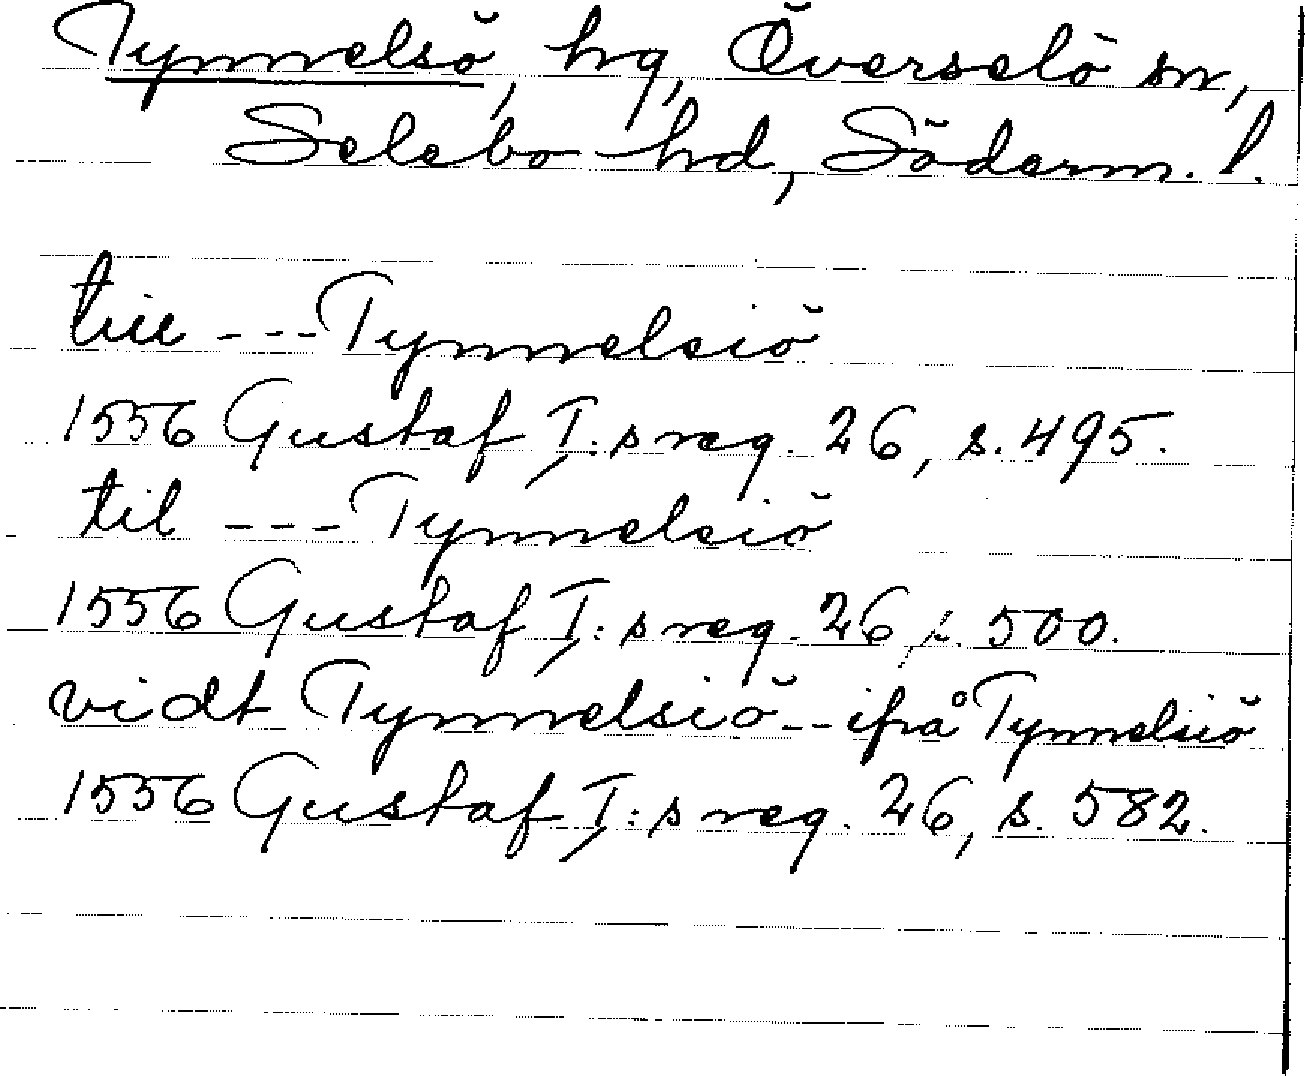 Tynnelsö, hg, Överselö sn,
Selebo hd, Söderm. l.
till --- Tynnelsiö
1556 Gustaf I:s reg. 26, s. 495.
til --- Tynnelsiö
1556 Gustaf I:s reg. 26, s. 500.
vidt Tynnelsiö -- ifrå Tynnelsiö
1556 Gustaf I:s reg. 26, s. 582.